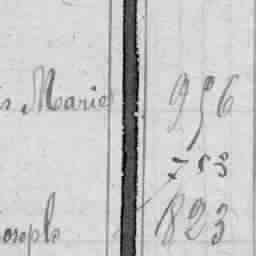 is Marie 956
753
Joseph 823